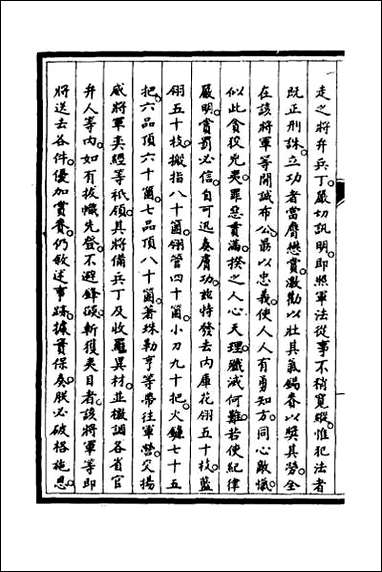 走之將弁兵丁嚴切訊明即照軍法從事不稍寬縱惟犯法者
既正刑誅立功者當膺懋賞激勸以壯其氣錫眷以獎其勞全
在該將軍等開誠布公最以忠義使人人有勇知方同心敵愾
似此貪狡兇夷罪惡貫滿揆之人心天理殲滅何難若使紀律
嚴明賞罰必信自可迅奏膚功茲特發去內庫花翎五十枝藍
翎五十枝搬指八十箇翎管四十箇小刀九十把火鐮七十五
把六品頂六十箇七品頂八十箇著珠勒亨等帶往軍營交揚
威將軍奕經等祇領其將備兵丁及收羅異材並檄調各省官
弁人等內如有拔幟先登不避鋒鏑斬獲夷目者該將軍等即
將送去各件優加賞賚仍敘述事蹟據實保奏朕必破格施恩